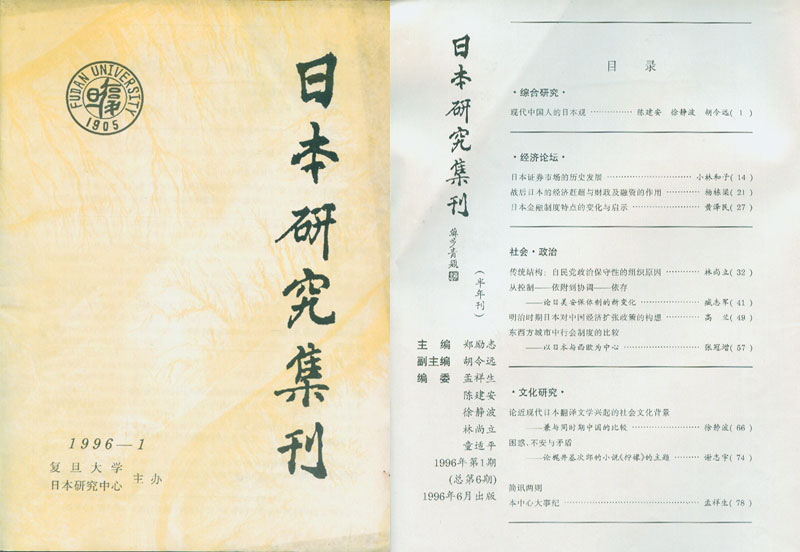 FUDAN UNIVERSITY
1905
日本研究集刊
1996—1
复旦大学
日本研究中心 主办
日本研究集刊
蘇步青題
(半年刊)
主 编 郑励志
副主编 胡令远
编 委 孟祥生
陈建安
徐静波
林尚立
童适平
1996年第1期
(总第6期)
1996年6月出版
目 录
·综合研究·
现代中国人的日本观 ………… 陈建安 徐静波 胡令远( 1 )
·经济论坛·
日本证券市场的历史发展 ………… 小林和子( 14 )
战后日本的经济赶超与财政及融资的作用 ………… 杨栋梁( 21 )
日本金融制度特点的变化与启示 ………… 黄泽民( 27 )
社会·政治
传统结构：自民党政治保守性的组织原因 ………… 林尚立( 32 )
从控制——依附到协调——依存
——论日美安保体制的新变化 ………… 臧志军( 41 )
明治时期日本对中国经济扩张政策的构想 ………… 高 兰( 49 )
东西方城市中行会制度的比较
——以日本与西欧为中心 ………… 张冠增( 57 )
·文化研究·
论近现代日本翻译文学兴起的社会文化背景
——兼与同时期中国的比较 ………… 徐静波( 66 )
困惑、不安与矛盾
——论梶井基次郎的小说《柠檬》的主题 ………… 谢志宇( 74 )
简讯两则
本中心大事纪 ………… 孟祥生( 78 )